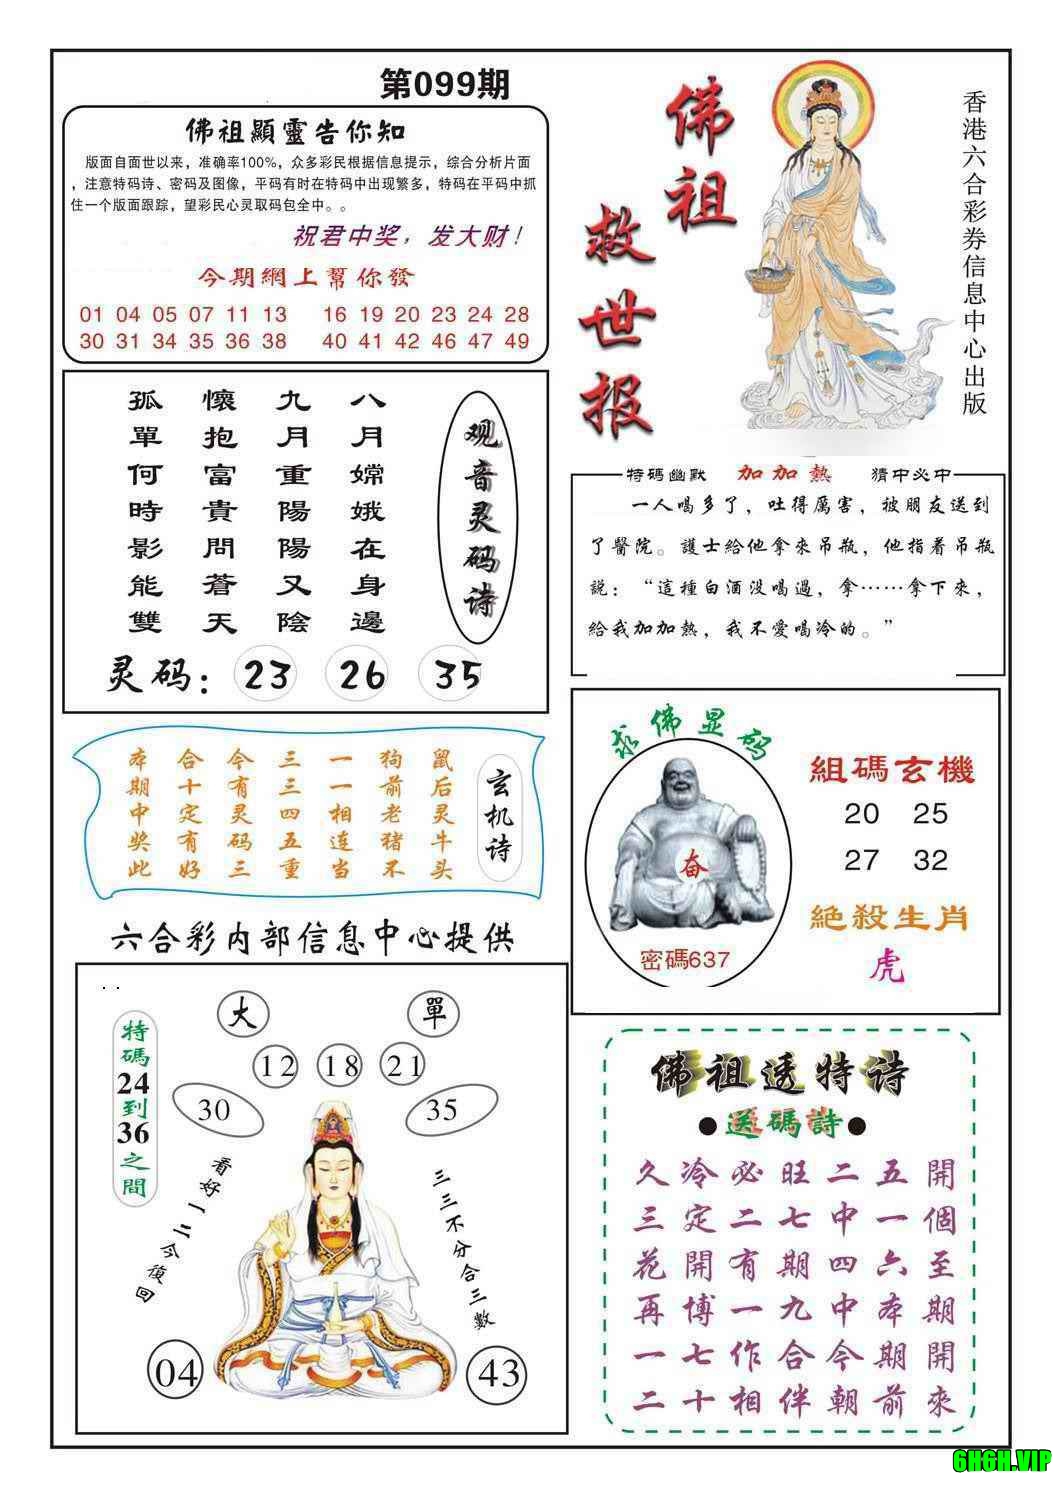 第099期
佛祖顯靈告你知
版面自面世以来，准确率100%，众多彩民根据信息提示，综合分析片面
，注意特码诗、密码及图像，平码有时在特码中出现繁多，特码在平码中抓
住一个版面跟踪，望彩民心灵取码包全中。。
祝君中奖，发大财！
今期網上幫你發
01 04 05 07 11 13 16 19 20 23 24 28
30 31 34 35 36 38 40 41 42 46 47 49
佛祖
救世报
香港六合彩券信息中心出版
观音灵码诗
八月嫦娥在身邊
九月重陽陽又陰
懷抱富貴問蒼天
孤單何時影能雙
灵码：23 26 35
特碼幽默 加加熱 猜中必中
一人喝多了，吐得厲害，被朋友送到
了醫院。護士給他拿來吊瓶，他指着吊瓶
説：“這種白酒没喝過，拿……拿下來，
給我加加熱，我不愛喝冷的。”
玄机诗
鼠后灵牛头
狗前老猪不
一一相连当
三三四五重
今有灵码三
合十定有好
本期中奖此
求佛显码
奋
密碼637
組碼玄機
20 25
27 32
絕殺生肖
虎
六合彩内部信息中心提供
大 單
12 18 21
30 35
特碼24到36之間
看好一二今復回
三三不分合三數
04 43
佛祖透特诗
●送碼詩●
久冷必旺二五開
三定二七中一個
花開有期四六至
再博一九中本期
一七作合今期開
二十相伴朝前來
6H6H.VIP